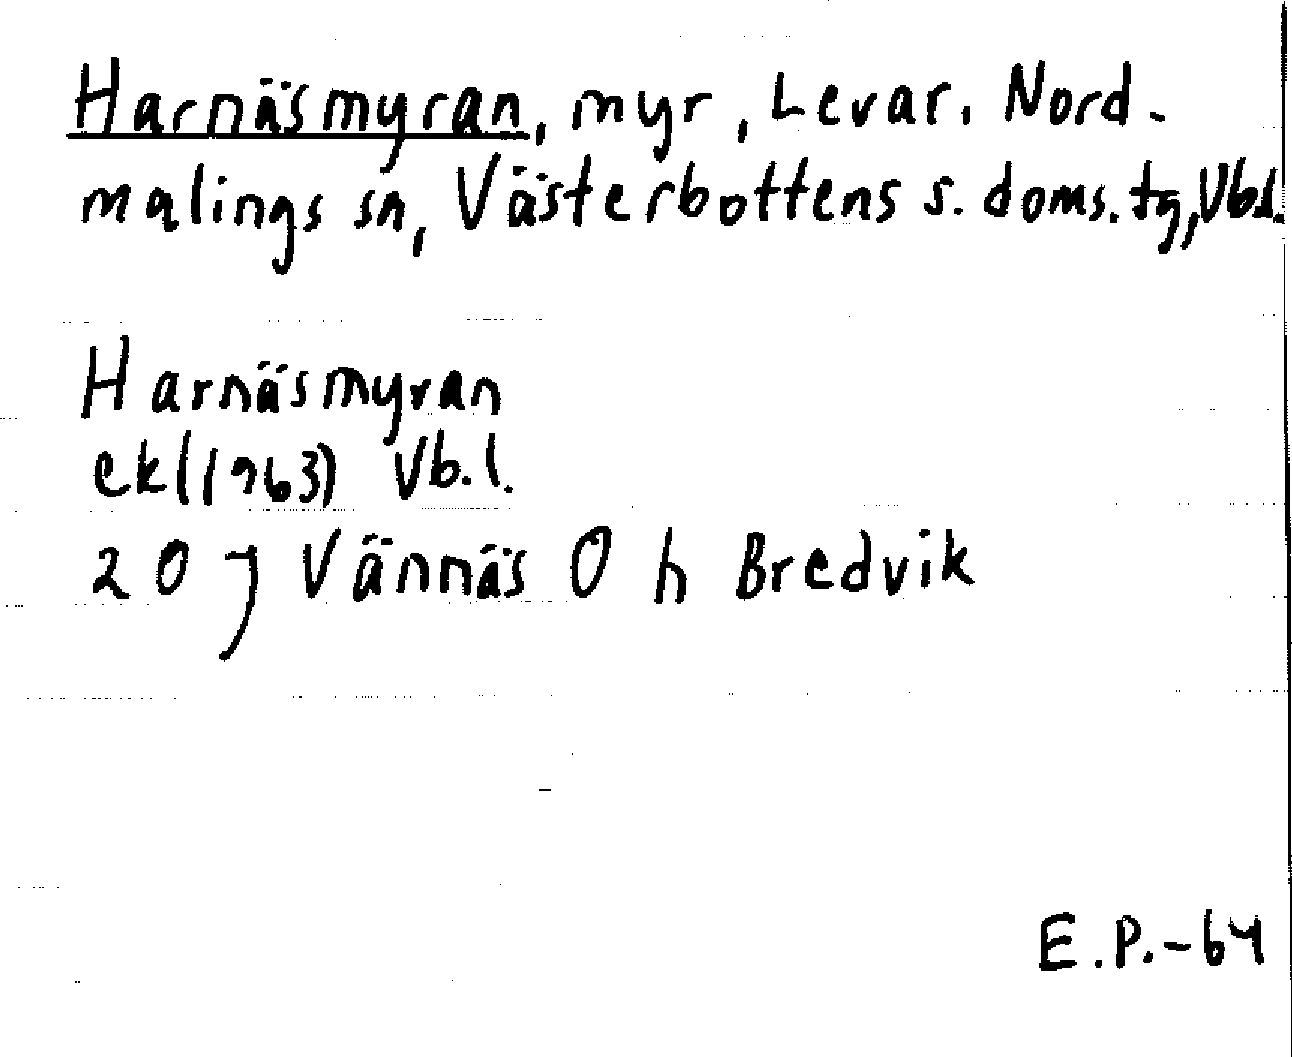 Harnäsmyran, myr, Levar. Nord-
malings sn, Västerbottens s. doms. tg, Vbl.
Harnäsmyran
ek(1963) Vb.l.
20 J Vännäs O h Bredvik
E.P.-64